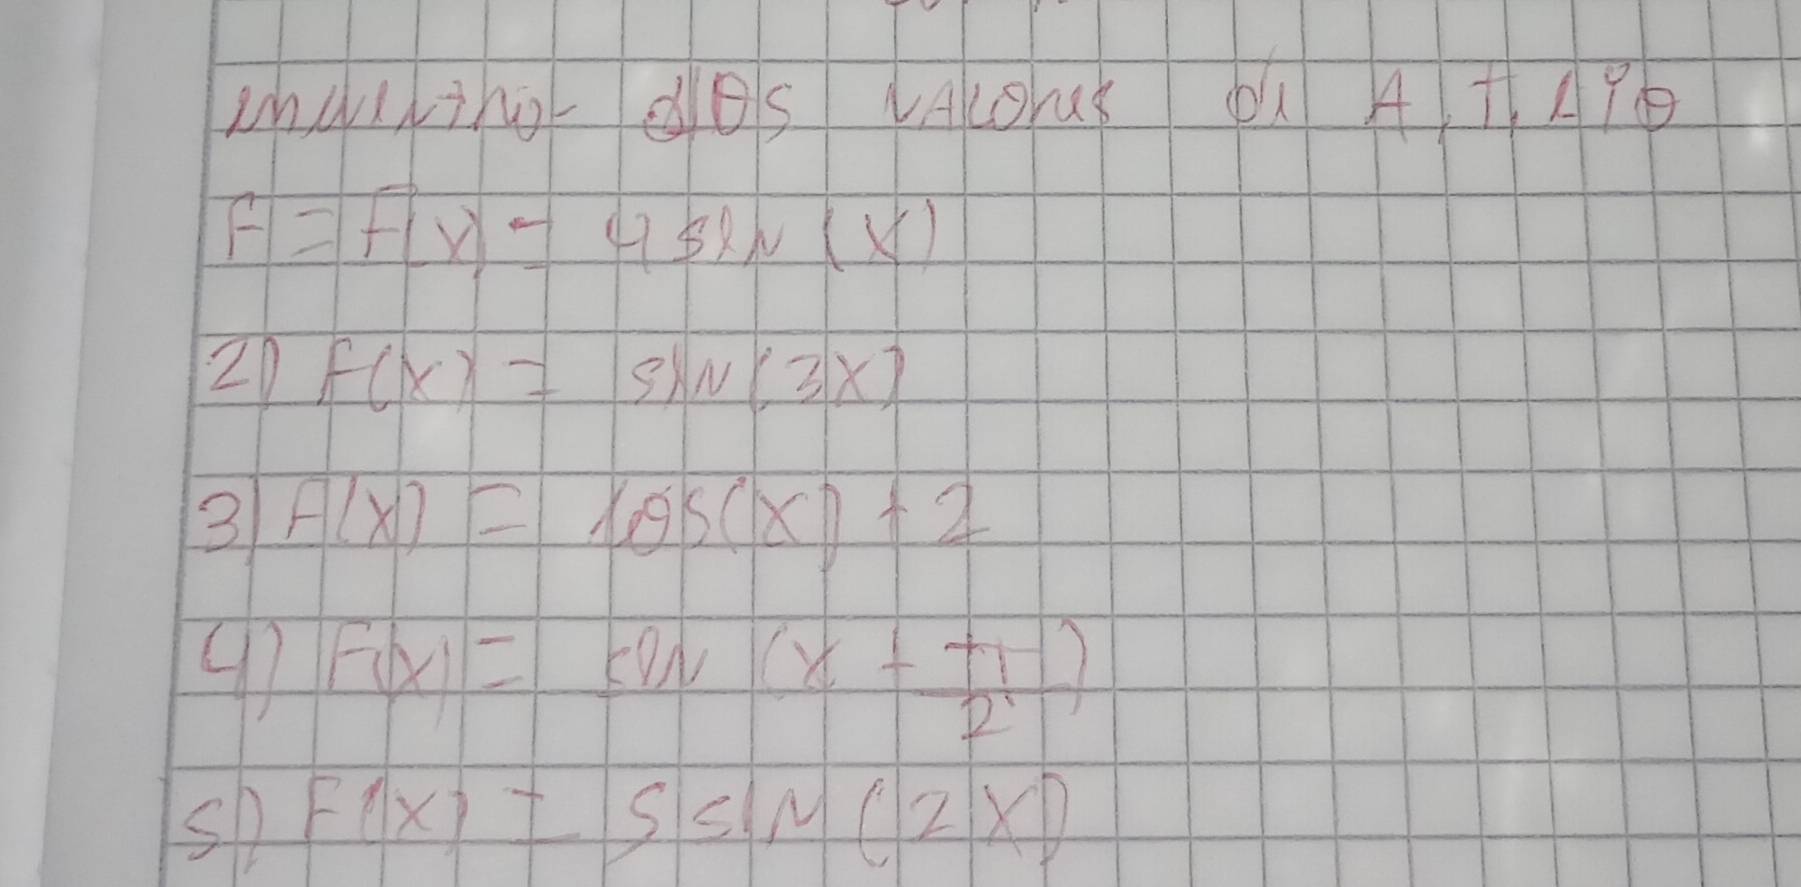 encuentro los valores de A, T, L y θ
F = F(x) = 4 sen (x)
2) F(x) = sen (3x)
3) F(x) = cos(x) + 2
4) F(x) = sen (x + π/2)
5) F(x) = 5 sin (2x)